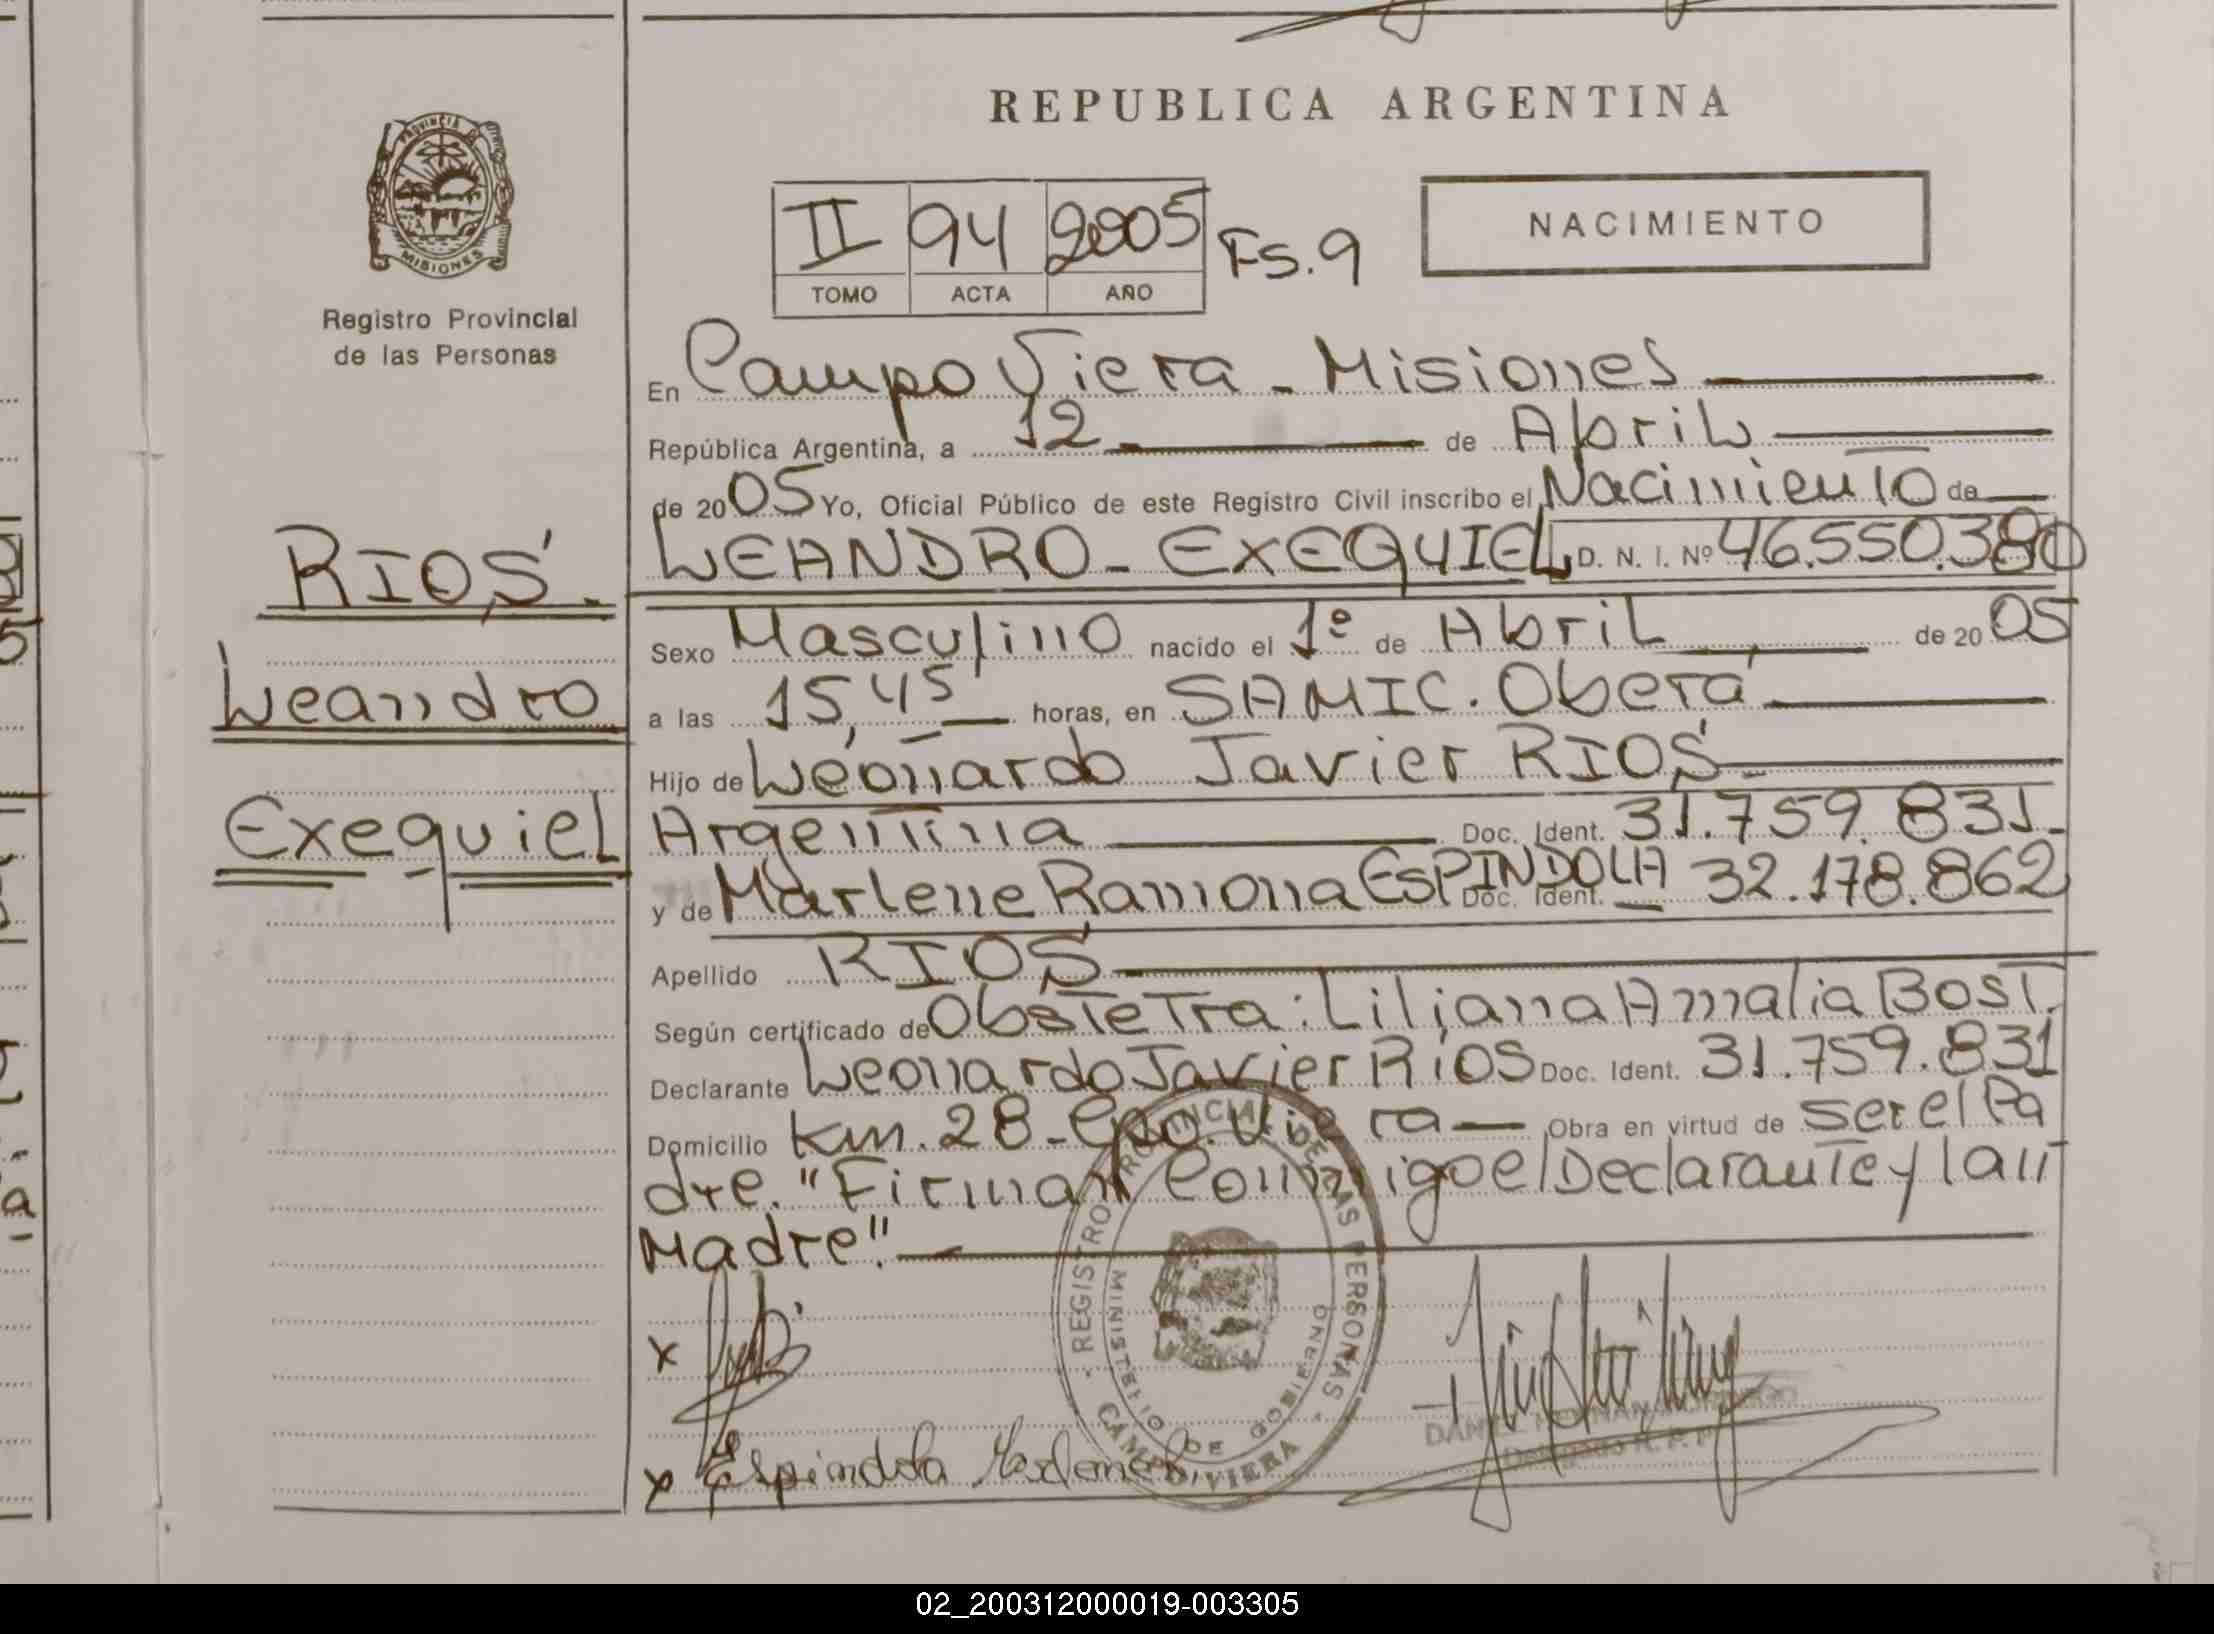 REPUBLICA ARGENTINA
PROVINCIA DE
MISIONES
Registro Provincial
de las Personas
II 94 2005 Fs. 9
TOMO ACTA AÑO
NACIMIENTO
RIOS.
Leandro
Exequiel
En Campo Viera - Misiones
República Argentina, a 12 de Abril
de 2005 Yo, Oficial Público de este Registro Civil inscribo el Nacimiento de
LEANDRO - EXEQUIEL D. N. I. Nº 46.550.380
Sexo Masculino nacido el 1º de Abril de 2005
a las 15,45 horas, en SAMIC. Oberá
Hijo de Leonardo Javier RIOS
Argentina Doc. Ident. 31.759.831.
y de Marlene Ramona ESPINDOLA Doc. Ident. 32.178.862
Apellido RIOS
Según certificado de Obstetra: Liliana Amalia Bost.
Declarante Leonardo Javier Rios Doc. Ident. 31.759.831
Domicilio Km. 28 - Cpo. Viera Obra en virtud de ser el Pa
dre. "Firman Conmigo el Declarante y la
Madre".
x
x Espindola
REGISTRO PROVINCIAL DE LAS PERSONAS
MINISTERIO DE GOBIERNO
CAMPO VIERA
02_200312000019-003305